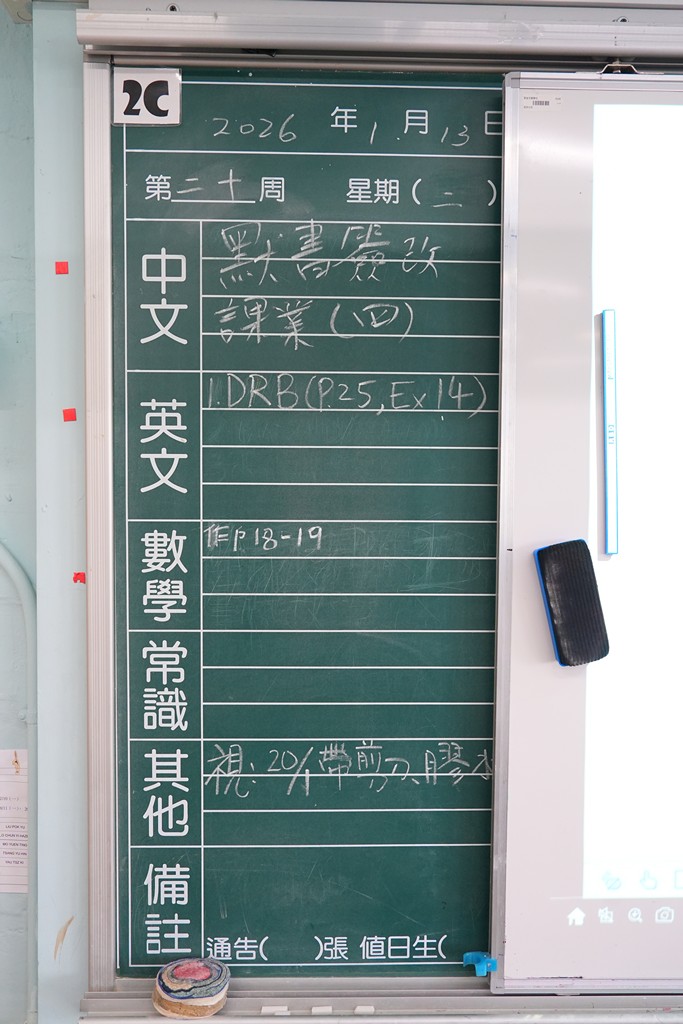 2C
2026 年 1 月 13 日
第二十周 星期(二)
中文
默書簽改
課業(四)
英文
1.DRB(P.25,Ex 14)
數學
作P18-19
常識
其他
視:20/1帶剪刀、膠水
備註
通告( )張 值日生(